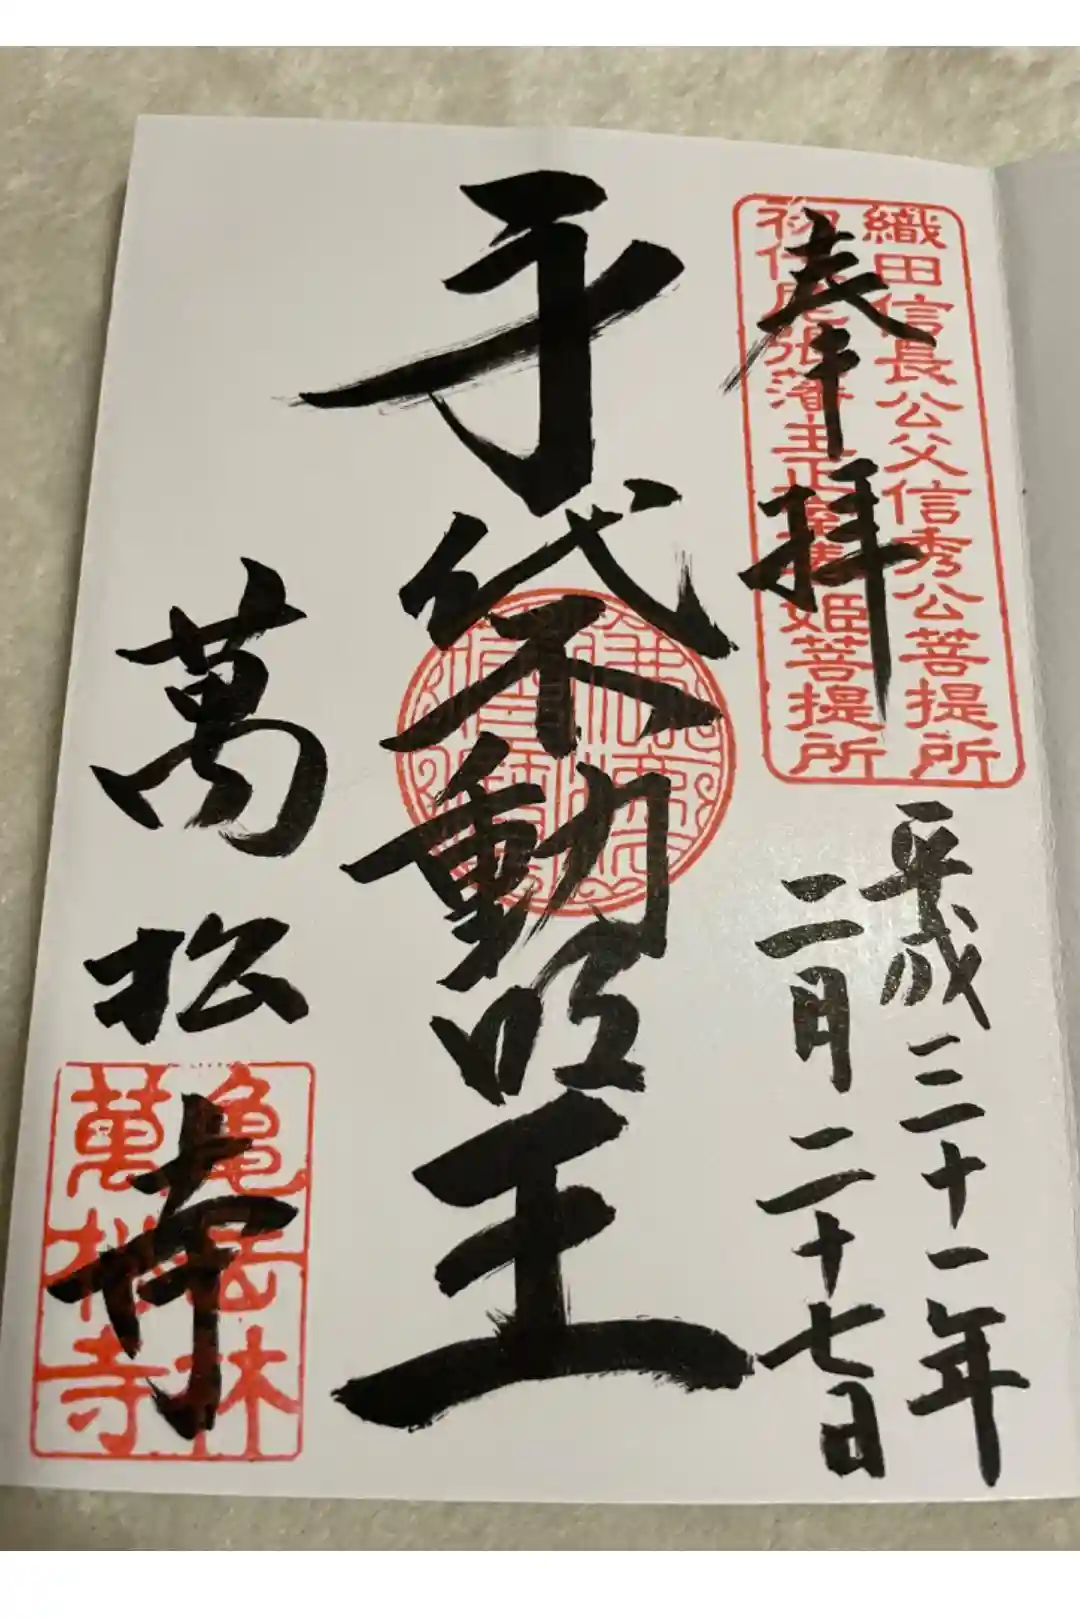 奉拝
織田信長公父信秀公菩提所
初代尾張藩主正室春姫菩提所
平成三十一年
二月二十七日
身代不動明王
萬松寺
亀岳林
萬松寺